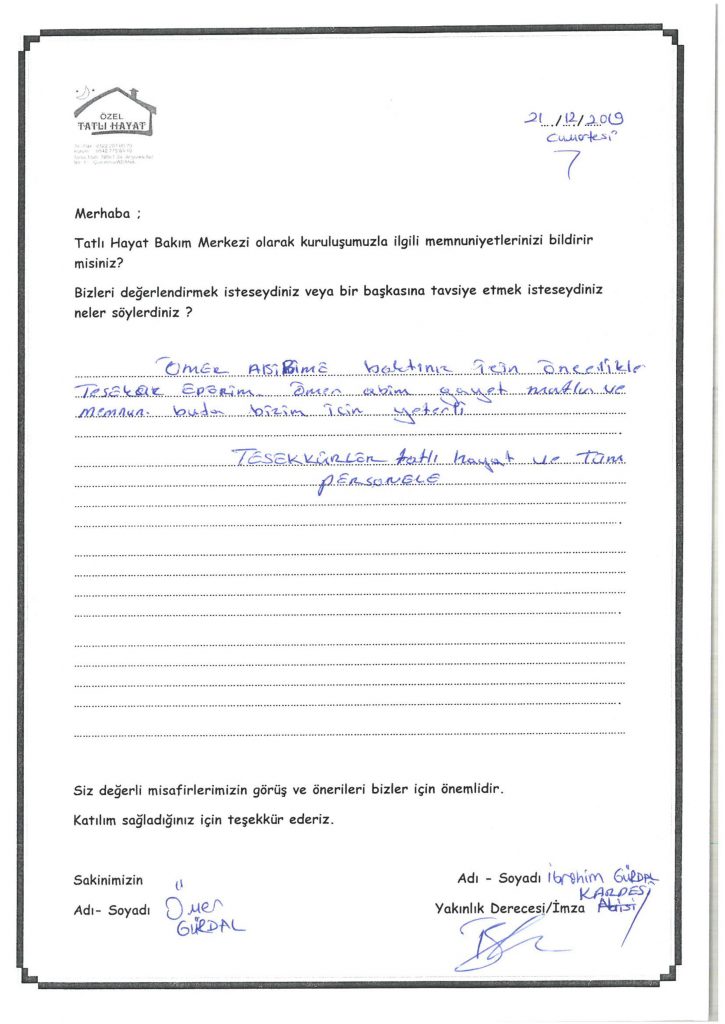 ÖZEL
TATLI HAYAT
21 / 12 / 2019
Cumartesi
Merhaba ;
Tatlı Hayat Bakım Merkezi olarak kuruluşumuzla ilgili memnuniyetlerinizi bildirir
misiniz?
Bizleri değerlendirmek isteseydiniz veya bir başkasına tavsiye etmek isteseydiniz
neler söylerdiniz ?
ÖMER ABİBİME baktınız için öncelikle
TEŞEKÜR EDERİM. Ömer abim gayet mutlu ve
memnun. buda bizim için yeterli
TEŞEKKÜRLER tatlı hayat ve tüm
PERSONELE
Siz değerli misafirlerimizin görüş ve önerileri bizler için önemlidir.
Katılım sağladığınız için teşekkür ederiz.
Sakinimizin
Adı- Soyadı Ömer
GÜRDAL
Adı - Soyadı İbrahim GÜRDAL
KARDEŞİ
Yakınlık Derecesi/İmza Abisi